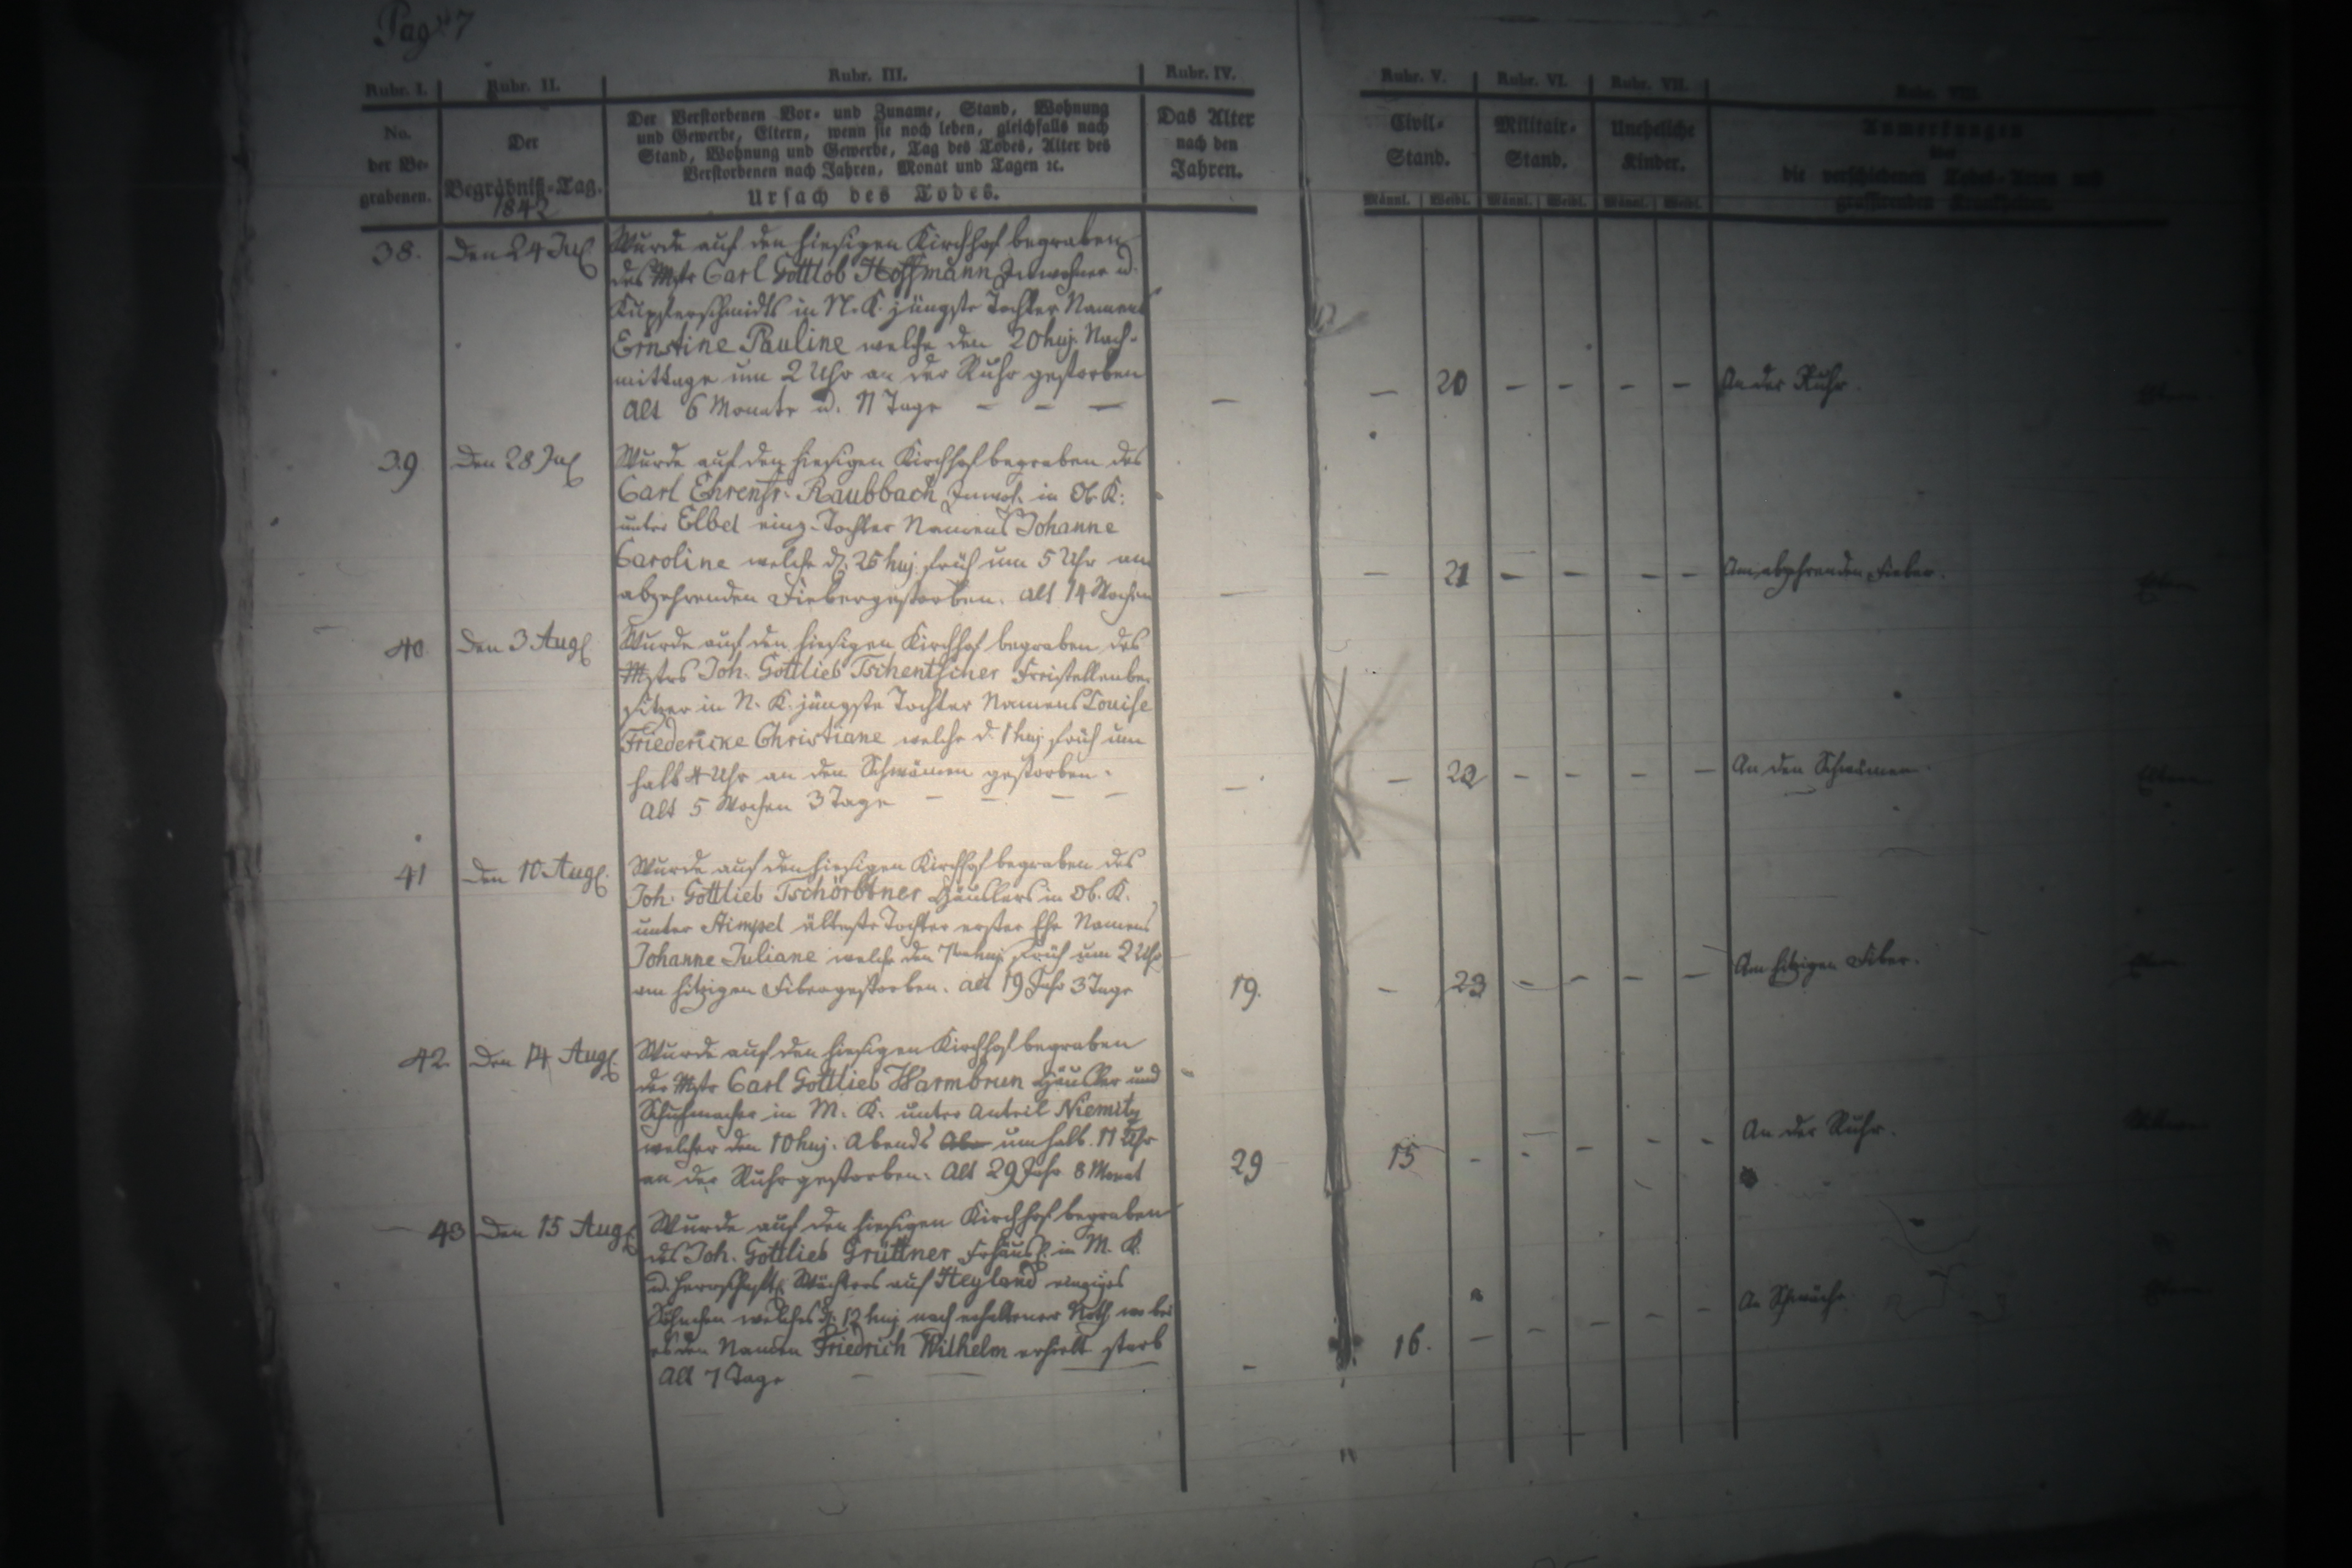 Pag. 7
Rubr. I. Rubr. II. Rubr. III. Rubr. IV. Rubr. V. Rubr. VI. Rubr. VII. Rubr. VIII.
No. der Be- grabenen.
Der Begräbniß-Tag. 1842
Der Verstorbenen Vor- und Zuname, Stand, Wohnung
und Gewerbe, Eltern, wenn sie noch leben, gleichfalls nach
Stand, Wohnung und Gewerbe, Tag des Todes, Alter des
Verstorbenen nach Jahren, Monat und Tagen ꝛc.
Ursach des Todes.
Das Alter nach den Jahren.
Civil- Stand.
Militair- Stand.
Uneheliche Kinder.
Anmerkungen
die verschiedenen Todes-Arten und
grassirenden Krankheiten.
Männl. Weibl. Männl. Weibl. Männl. Weibl.
38. Den 24 Jul Wurde auf den hiesigen Kirchhof begraben
des Mstr Carl Gottlob Hoffmann Inwohner u.
Kupferschmidts in N. K. jüngste Tochter Namens
Ernstine Pauline welche den 20 huj. Nach-
mittags um 2 Uhr an der Ruhr gestorben
Alt 6 Monate u. 11 Tage — — — — — 20 — — — — An der Ruhr.
39 Den 28 Jul Wurde auf den hiesigen Kirchhof begraben des
Carl Ehrenfr. Raubbach Inwoh. in Ob. K:
unter Elbel einz. Tochter Namens Johanne
Caroline welche d. 25 huj. früh um 5 Uhr am
abzehrenden Fieber gestorben. Alt 14 Wochen — — 21 — — — — Am abzehrenden Fieber.
40. Den 3 Aug Wurde auf den hiesigen Kirchhof begraben des
Mstrs Joh. Gottlieb Tschentscher Freistellenbe-
sitzer in N. K. jüngste Tochter Namens Louise
Friedericke Christiane welche d. 1 huj. früh um
halb 4 Uhr an den Schwämen gestorben.
Alt 5 Wochen 3 Tage — — — — — — 22 — — — — An den Schwämen.
41 Den 10 Aug. Wurde auf den hiesigen Kirchhof begraben des
Joh. Gottlieb Tschörtner Häuslers in Ob. K.
unter Stimpel älteste Tochter erster Ehe Namens
Johanne Juliane welche den 7 huj. früh um 2 Uhr
am hitzigen Fiber gestorben. Alt 19 Jahr 3 Tage 19. — 23 — — — — Am hitzigen Fiber.
42. Den 14 Aug. Wurde auf den hiesigen Kirchhof begraben
der Mstr Carl Gottlieb Warmbrun Häusler und
Schuhmacher in M. K. unter Anteil Niemitz
welcher den 10 huj. Abends um halb 11 Uhr
an der Ruhr gestorben. Alt 29 Jahr 8 Monat 29 15 — — — — — An der Ruhr.
43 Den 15 Aug Wurde auf den hiesigen Kirchhof begraben
des Joh. Gottlieb Grüttner Frhäusl. in M. K.
u. herrschaftl. Wächters auf Heyland einziges
Söhnchen welches d. 12 huj. nach erhaltener Noth. wo bei
es den Namen Friedrich Wilhelm erhielt starb
Alt 7 Tage — — — — 16. — — — — — An Schwäche